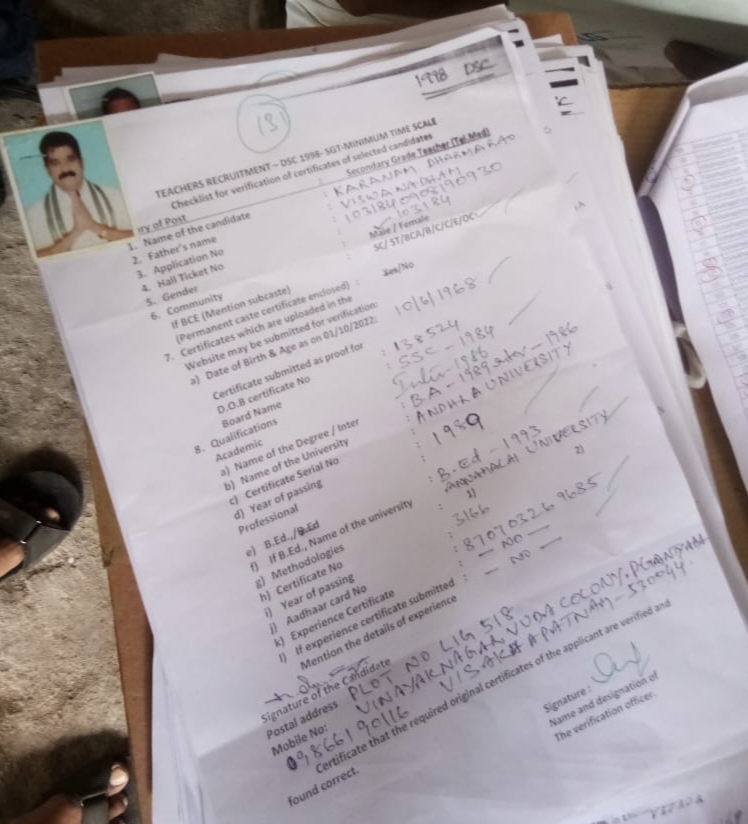 1998 DSC
131
TEACHERS RECRUITMENT – DSC 1998- SGT-MINIMUM TIME SCALE
Checklist for verification of certificates of selected candidates
ry of Post : Secondary Grade Teacher (Tel.Med)
1. Name of the candidate : KARANAM DHARMARAO
2. Father's name : VISWANADHAM
3. Application No : 1031840908190930
4. Hall Ticket No : 103184
5. Gender : Male / Female
6. Community SC/ ST/BCA/B/C/C/E/OC
If BCE (Mention subcaste)
(Permanent caste certificate enclosed) : Yes/No
7. Certificates which are uploaded in the
Website may be submitted for verification:
a) Date of Birth & Age as on 01/10/2022: 10/6/1968
Certificate submitted as proof for
D.O.B certificate No : 138524
Board Name : SSC - 1984
8. Qualifications Inter - 1986
Academic
a) Name of the Degree / Inter : B.A - 1989 Inter - 1986
b) Name of the University : ANDHRA UNIVERSITY
c) Certificate Serial No :
d) Year of passing : 1989
Professional
e) B.Ed.,/B.Ed : B.Ed - 1993
f) If B.Ed., Name of the university ANNAMALAI UNIVERSITY
g) Methodologies : 1) 2)
h) Certificate No 3166
i) Year of passing
j) Aadhaar card No : 870703269685
k) Experience Certificate : - NO -
l) If experience certificate submitted : - NO -
Mention the details of experience
Signature of the Candidate
Postal address PLOT NO LIG 518
VINAYAKNAGAR VUDA COLONY,
VISAKHAPATNAM - 530044.
Mobile No: 09866190116
Certificate that the required original certificates of the applicant are verified and
found correct.
Signature :
Name and designation of
The verification officer.